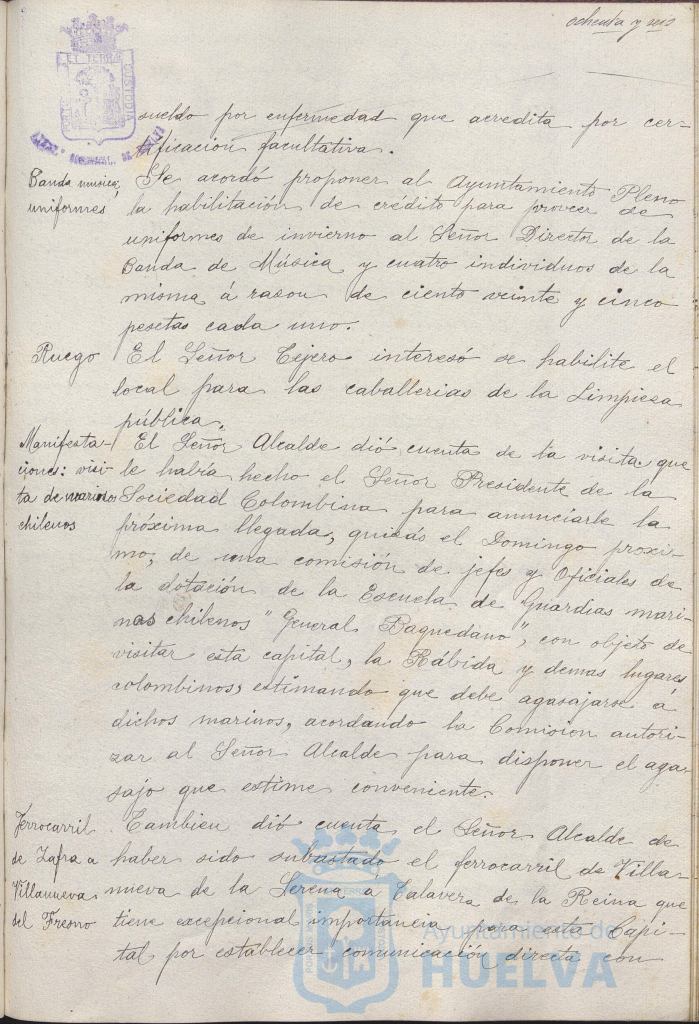 ochenta y seis
sueldo por enfermedad que acredita por cer-
tificacion facultativa.
Banda musica, uniformes
Se acordó proponer al Ayuntamiento Pleno
la habilitación de crédito para proveer de
uniformes de invierno al Señor Director de la
Banda de Música y cuatro individuos de la
misma á rason de ciento veinte y cinco
pesetas cada uno.
Ruego
El Señor Tejero interesó se habilite el
local para las caballerias de la Limpiesa
pública.
Manifesta-
ciones: visi-
ta de marinos
chilenos
El Señor Alcalde dió cuenta de la visita que
le había hecho el Señor Presidente de la
Sociedad Colombina para anunciarle la
próxima llegada, quisás el Domingo proxi-
mo, de una comisión de jefes y Oficiales de
la dotación de la Escuela de Guardias mari-
nas chilenos "General Baquedano", con objeto de
visitar esta capital, la Rábida y demas lugares
colombinos, estimando que debe agasajarse á
dichos marinos, acordando la Comision autori-
zar al Señor Alcalde para disponer el aga-
sajo que estime conveniente.
Ferrocarril
de Zafra a
Villanueva
del Fresno
Tambien dió cuenta el Señor Alcalde de
haber sido subastado el ferrocarril de Villa-
nueva de la Serena á Talavera de la Reina que
tiene excepcional importancia para esta Capi-
tal por establecer comunicación directa con
Ayuntamiento de
HUELVA